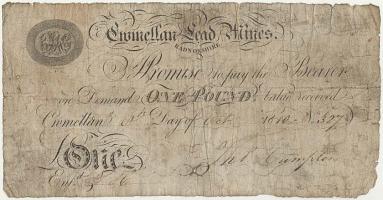 Cwmellan Lead Mines.
RADNORSHIRE
I Promise to pay the Bearer
on Demand ONE POUND value received
Cwmellan Day of Oct 1810 No 327
£ One
Entd